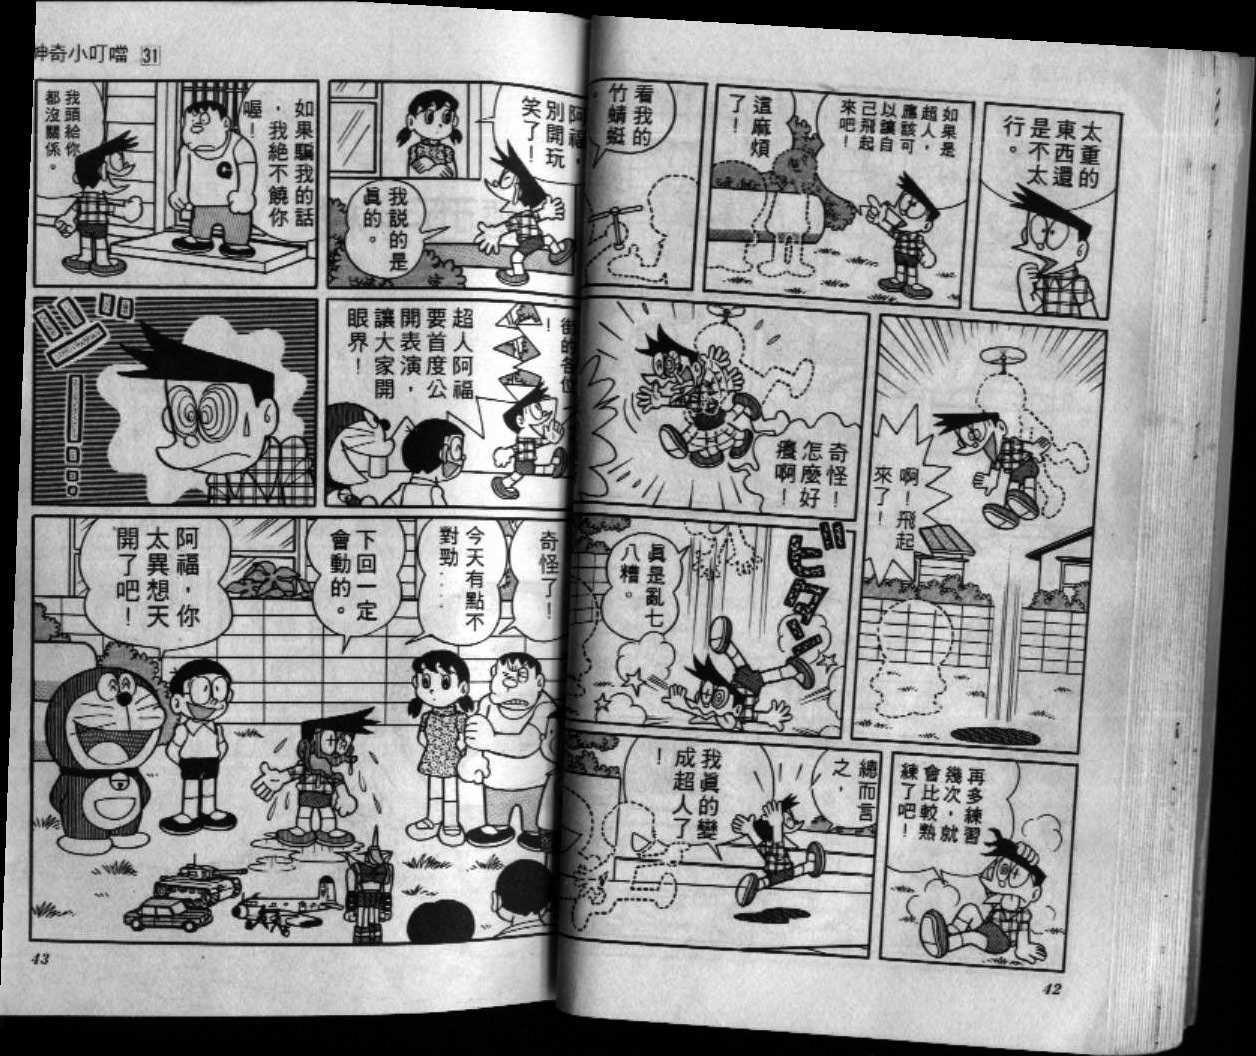 神奇小叮噹 31
太重的
東西還
是不太
行。
如果是
超人，
應該可
以讓自
己飛起
來吧！
這麻煩
了！
看我的
竹蜻蜓
。
啊！飛起
來了！
奇怪！
怎麼好
癢啊！
真是亂七
八糟。
ビターン
再多練習
幾次，就
會比較熟
練了吧！
總而言
之，
我真的變
成超人了
！
42
阿福，
別開玩
笑了！
我說的是
真的。
如果騙我的話
，我絕不饒你
喔！
我頭給你
都沒關係。
街的各位
！
超人阿福
要首度公
開表演，
讓大家開
眼界！
奇怪了！
今天有點不
對勁....
下回一定
會動的。
阿福，你
太異想天
開了吧！
43